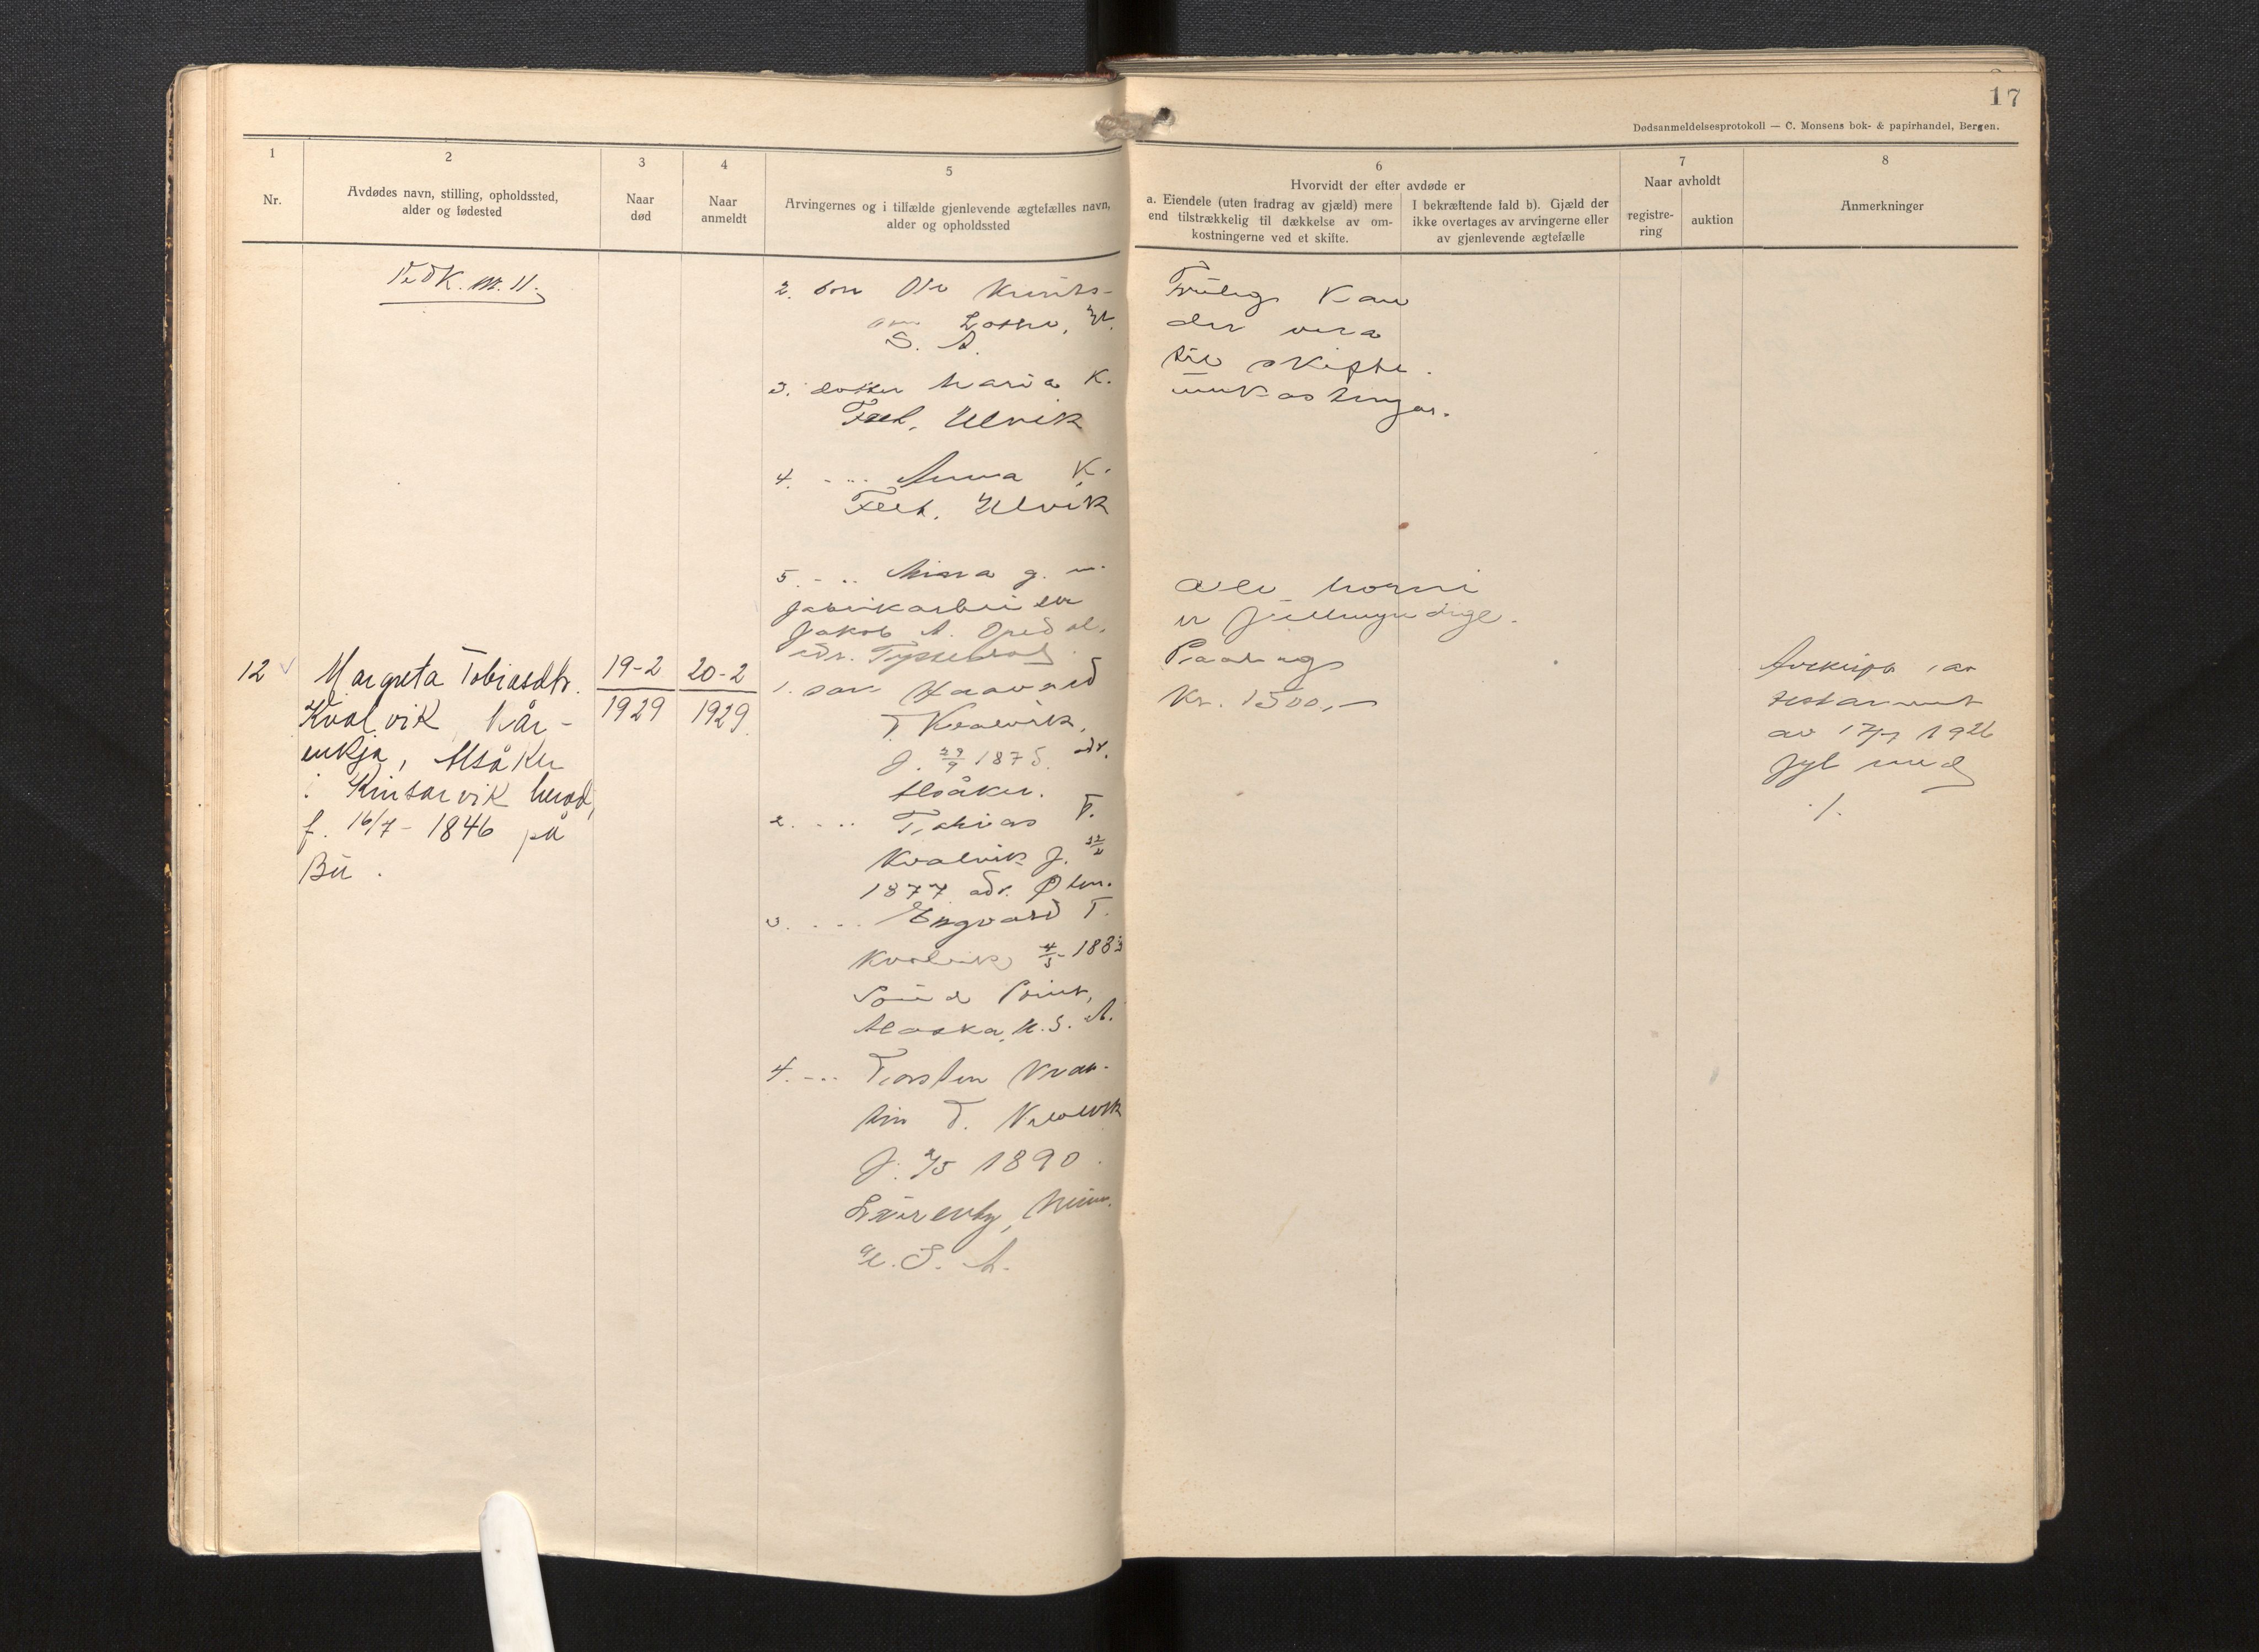 17
Dødsanmeldelsesprotokoll — C. Monsens bok- & papirhandel, Bergen.
1
Nr.
2
Avdødes navn, stilling, opholdssted,
alder og fødested
3
Naar
død
4
Naar
anmeldt
5
Arvingernes og i tilfælde gjenlevende ægtefælles navn,
alder og opholdssted
6
Hvorvidt der efter avdøde er
a. Eiendele (uten fradrag av gjæld) mere
end tilstrækkelig til dækkelse av om-
kostningerne ved et skifte.
I bekræftende fald b). Gjæld der
ikke overtages av arvingerne eller
av gjenlevende ægtefælle
7
Naar avholdt
registre-
ring
auktion
8
Anmerkninger
2. son Ola Knuts-
S. A.
3. dotter Maria K.
Ulvik
4. - .. Anna K.
Ulvik
5. - .. g. m.
fabrikarbeider
Jakob A. Opedal,
adr. Tyssedal
Truleg kan
der vera
til skifte.
umkostningar.
Alle borni
er fullmyndige.
12
Margreta Tobiasdtr.
Kvalvik, kår-
enkja, Alsåker
i Kinsarvik herad,
f. 16/7 - 1846 på
Bu.
19-2
1929
20-2
1929
1. son Haavard
T. Kvalvik,
f. 29/9 1875. adr.
Alsåker.
2. - .. Tobias T.
Kvalvik f.
1877 adr. Ølen.
3. - .. Engvard T.
Kvalvik 4/3 - 1883
Sand Point,
Alaska, U. S. A.
4. - .. Torsten
T. Kvalvik
f. 1890.
Minn.
U. S. A.
Paalag
Kr. 1500,-
Avskrift av
testament
av 1926
fylt med
./.